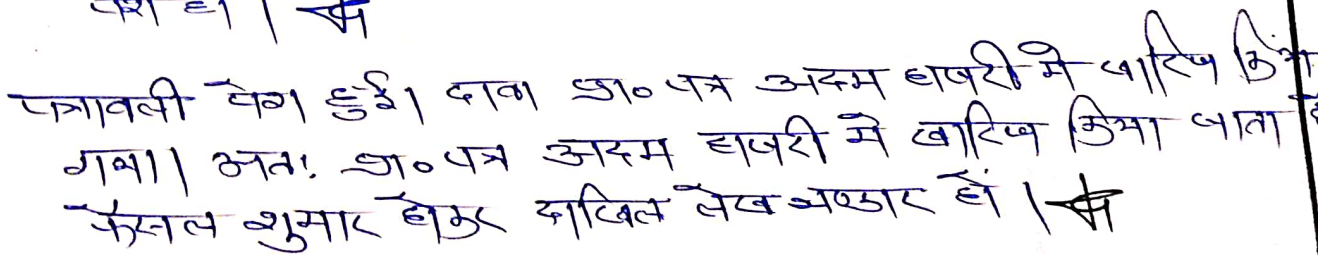 पेश हो।
पत्रावली पेश हुई। दावा प्रा० पत्र अदम हाजरी मे खारिज किया
गया। अतः प्रा० पत्र अदम हाजरी मे खारिज किया जाता है
फैसल शुमार होकर दाखिल लेख भण्डार हों।